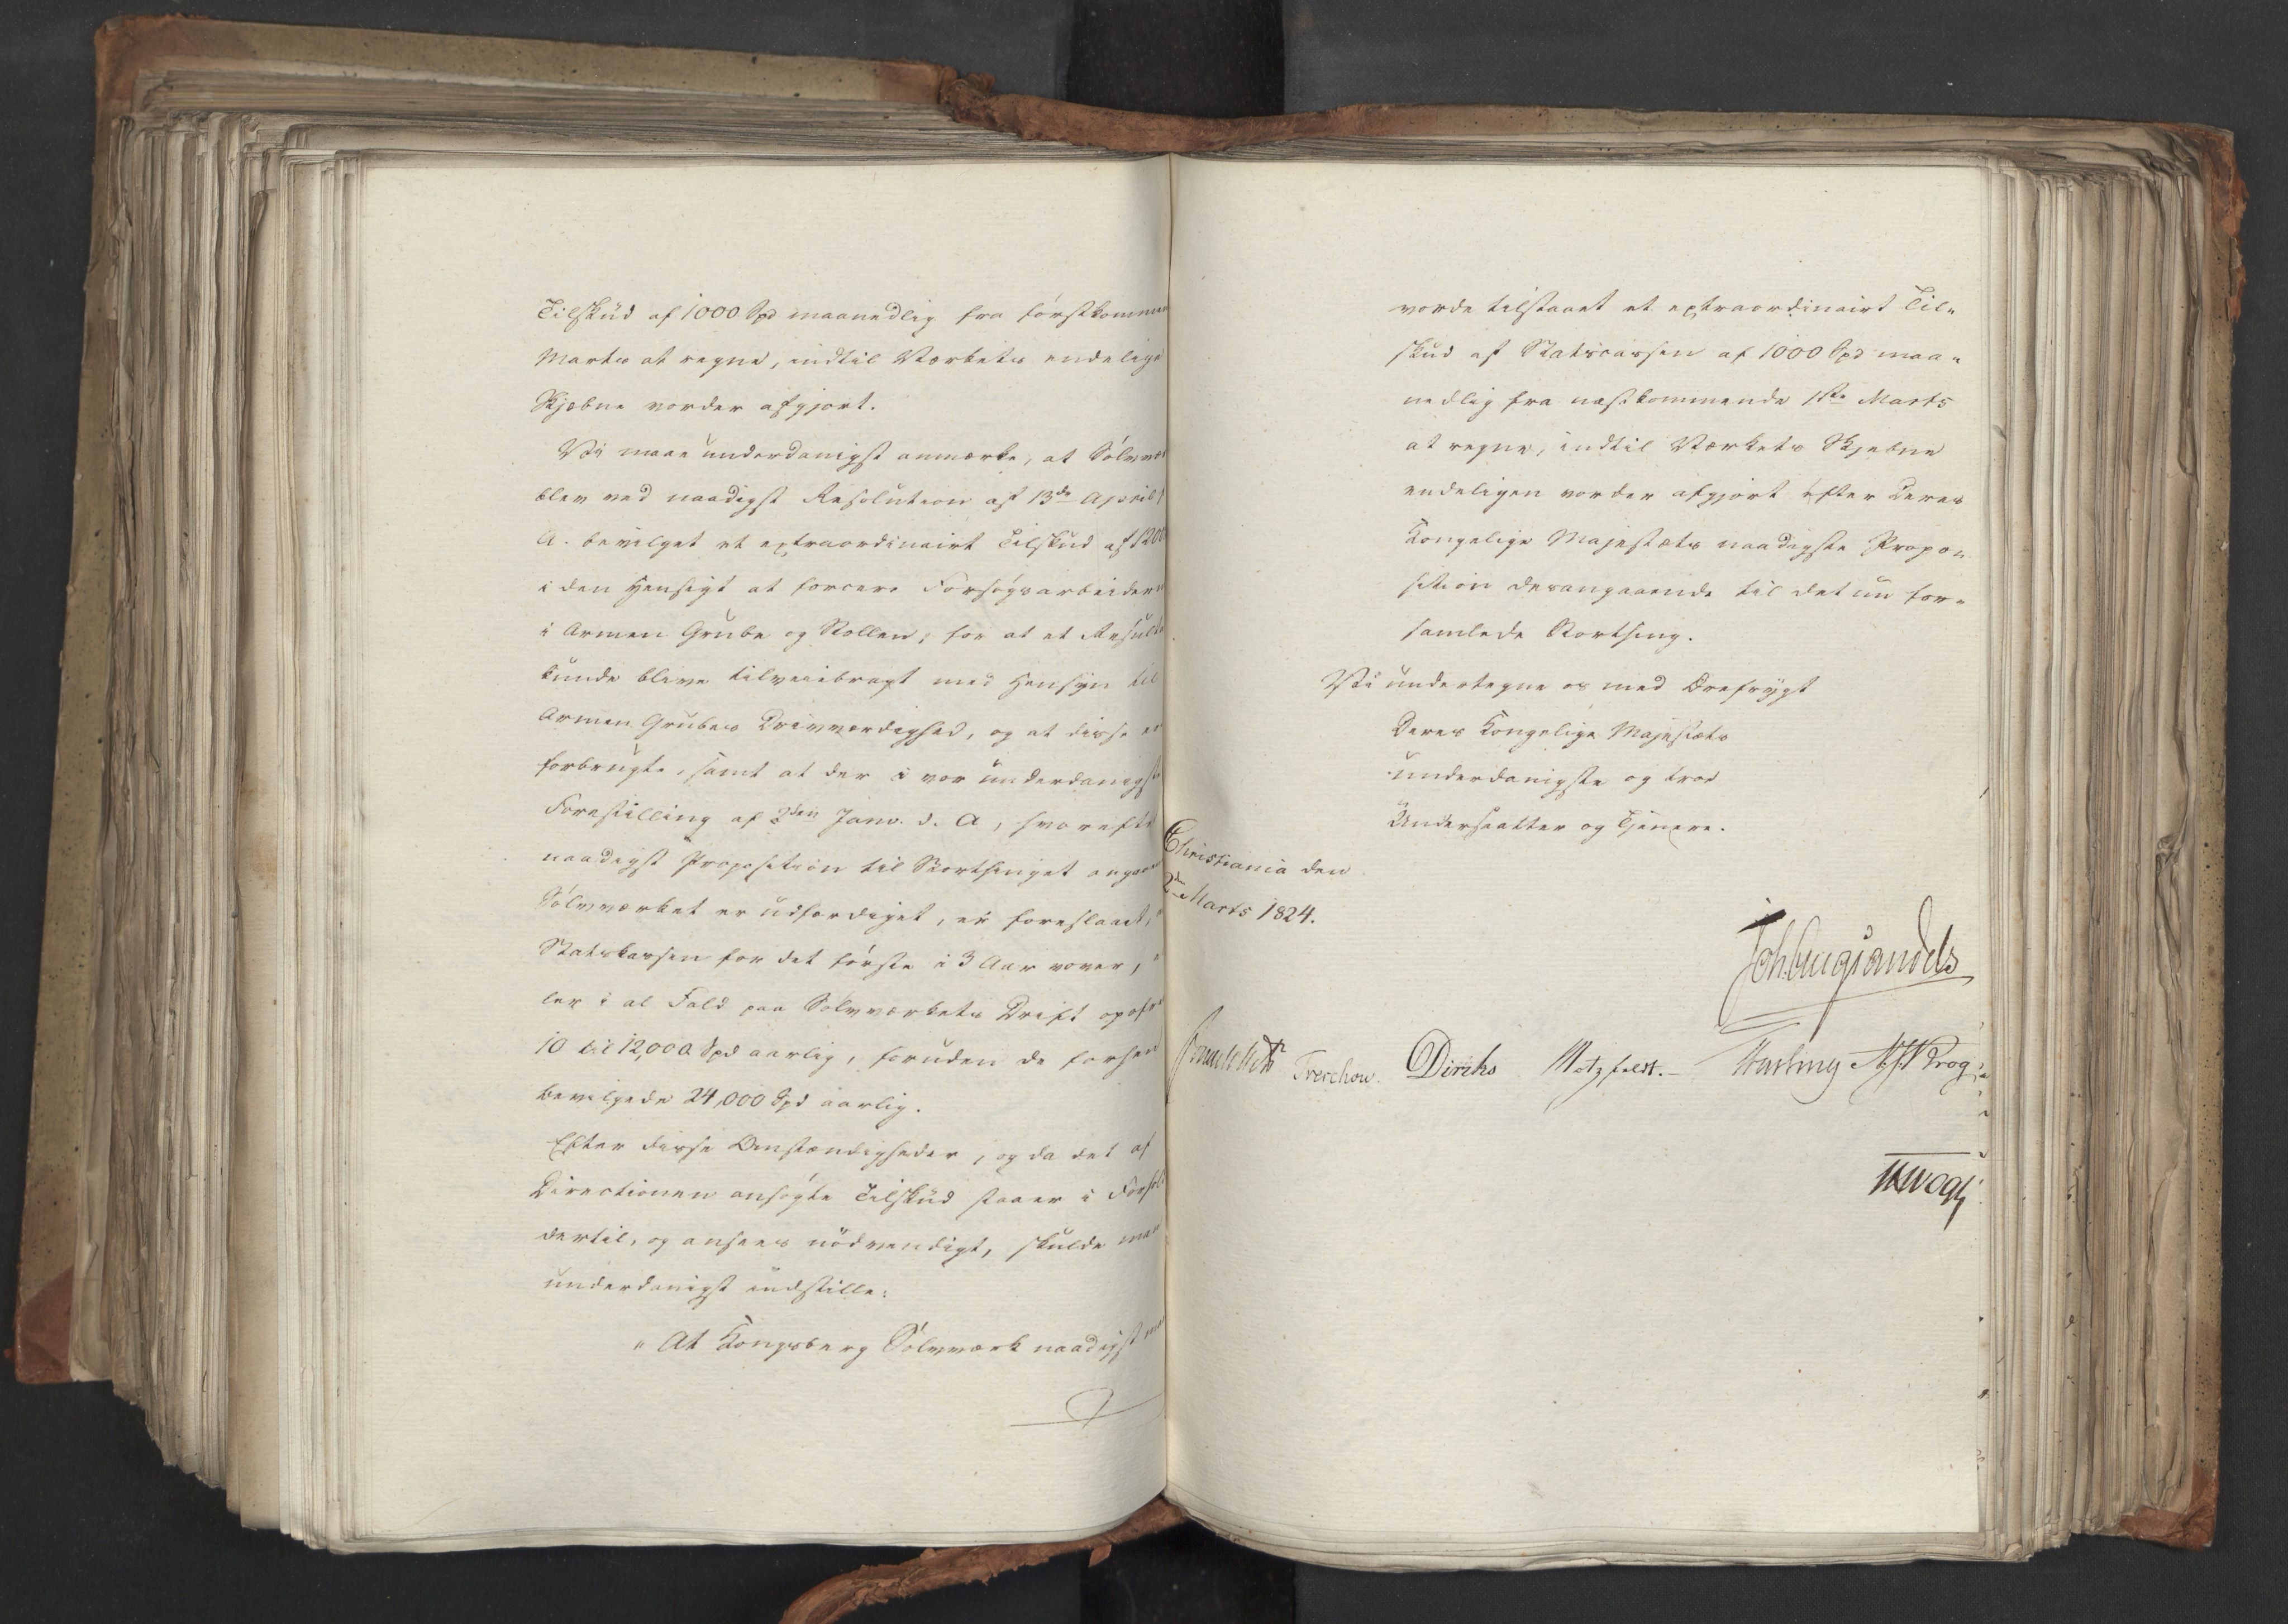 Tilskud af 1000 Spd maanedlig fra førstkommen
Marts at regne, indtil Værkets endelige
Skjæbne vorder afgjort.
Vi maae underdanigst anmærke, at Sølvvær
blev ved naadigst Resolution af 13de April
A. bevilget et extraordinairt Tilskud af 1200
i den Hensigt at forcere Forsøgsarbeidern
i Armen Grube og Stollen, for at et Resulta
kunde blive tilveiebragt med Hensyn til
Armen Grubes Drivværdighed, og at disse er
forbrugte, samt at der i vor underdanigste
Forestilling af 3den Janv. d. A, hvorefter
naadigst Proposition til Storthinget angaae
Sølvværket er udfærdiget, er foreslaaet,
Statskassen for det første i 3 Aar vover,
ler i al Fald paa Sølvværkets Drift opofr
10 til 12,000 Spd aarlig, foruden de forhen
bevilgede 24,000 Spd aarlig.
Efter disse Omstændigheder, og da det af
Directionen ansøgte Tilskud staaer i Forhol
dertil, og ansees nødvendigt, skulde man
underdanigst indstille:
"At Kongsberg Sølvværk naadigst maa
vorde tilstaaet et extraordinairt Til-
skud af Statscassen af 1000 Spd maa-
nedlig fra næstkommende 1ste Marts
at regne, indtil Værkets Skjebne
endeligen vorder afgjort efter Deres
Kongelige Majestæts naadigste Propo-
sition desangaaende til det nu for-
samlede Storthing.
Vi undertegne os med Ærefrygt
Deres Kongelige Majestæts
underdanigste og troe
Undersaatter og Tjenere.
Christiania den
2den Marts 1824.
Joh. Aug. Sandels
Sommerhielm Treschow. Diriks Motzfeldt. Fasting A/S Krog
Vogt